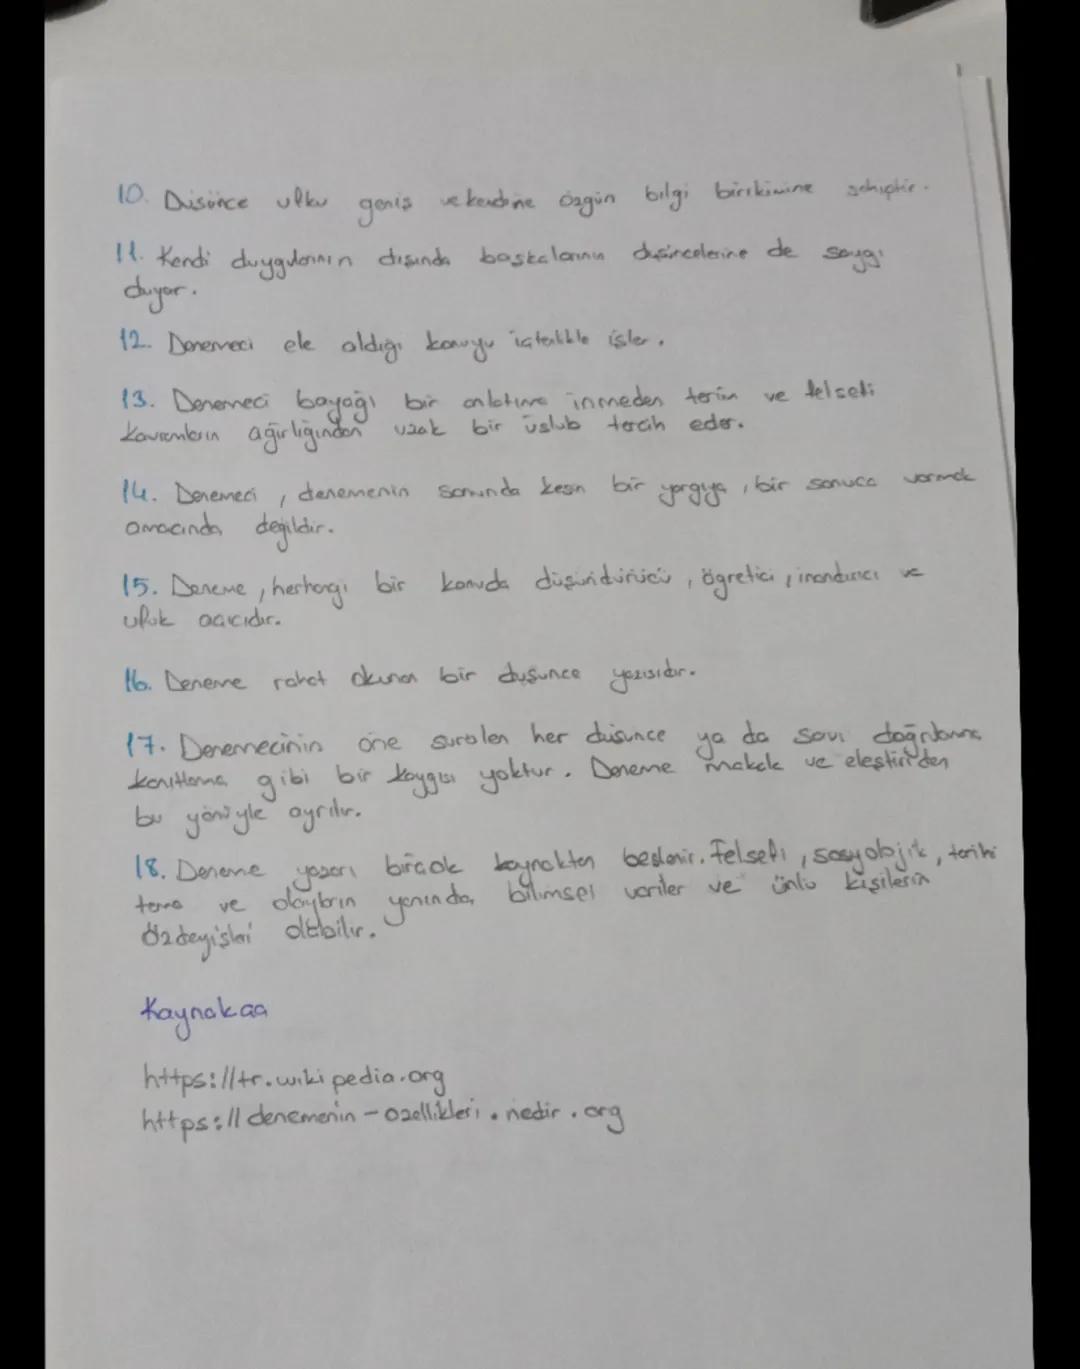 10. Düşünce ufku geniş ve kendine özgün bilgi birikimine sahiptir.
11. Kendi duygularının dışında başkalarının düşüncelerine de saygı
duyar.
12. Denemeci ele aldığı konuyu içtenlikle işler.
13. Denemeci bayağı bir anlatıma inmeden terim ve felsefi
kavramların ağırlığından uzak bir üslub tercih eder.
14. Denemeci, denemenin sonunda kesin bir yargıya, bir sonuca varmak
amacında değildir.
15. Deneme, herhangi bir konuda düşündürücü, öğretici, inandırıcı ve
ufuk açıcıdır.
16. Deneme rahat okunan bir düşünce yazısıdır.
17. Denemecinin öne sürülen her düşünce ya da savı doğrulama
kanıtlama gibi bir kaygısı yoktur. Deneme makale ve eleştiri'den
bu yönüyle ayrılır.
18. Deneme yazarı birçok kaynaktan beslenir. Felsefi, sosyolojik, tarihi
tema ve olayların yanında, bilimsel veriler ve ünlü kişilerin
özdeyişleri olabilir.
Kaynakça
https://tr.wikipedia.org
https://denemenin-ozellikleri.nedir.org